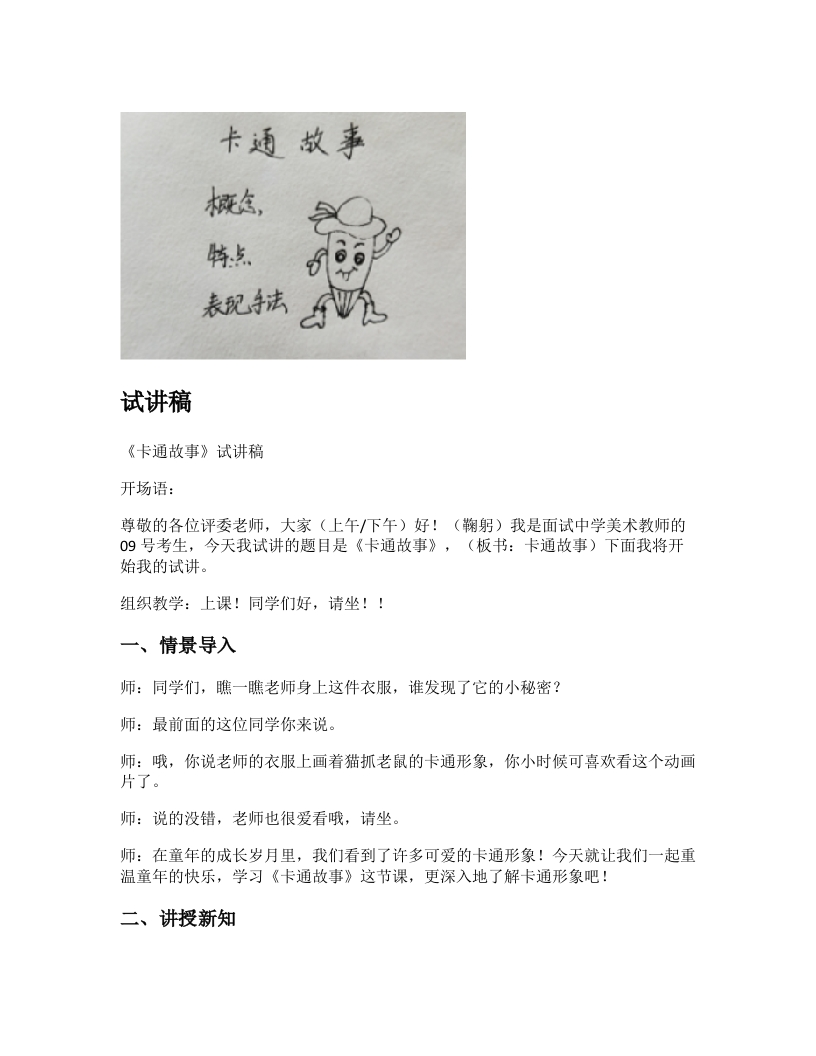 卡通故事
概念
特点
表现手法
试讲稿
《卡通故事》试讲稿
开场语：
尊敬的各位评委老师，大家（上午/下午）好！（鞠躬）我是面试中学美术教师的
09 号考生，今天我试讲的题目是《卡通故事》，（板书：卡通故事）下面我将开
始我的试讲。
组织教学：上课！同学们好，请坐！！
一、情景导入
师：同学们，瞧一瞧老师身上这件衣服，谁发现了它的小秘密？
师：最前面的这位同学你来说。
师：哦，你说老师的衣服上画着猫抓老鼠的卡通形象，你小时候可喜欢看这个动画
片了。
师：说的没错，老师也很爱看哦，请坐。
师：在童年的成长岁月里，我们看到了许多可爱的卡通形象！今天就让我们一起重
温童年的快乐，学习《卡通故事》这节课，更深入地了解卡通形象吧！
二、讲授新知